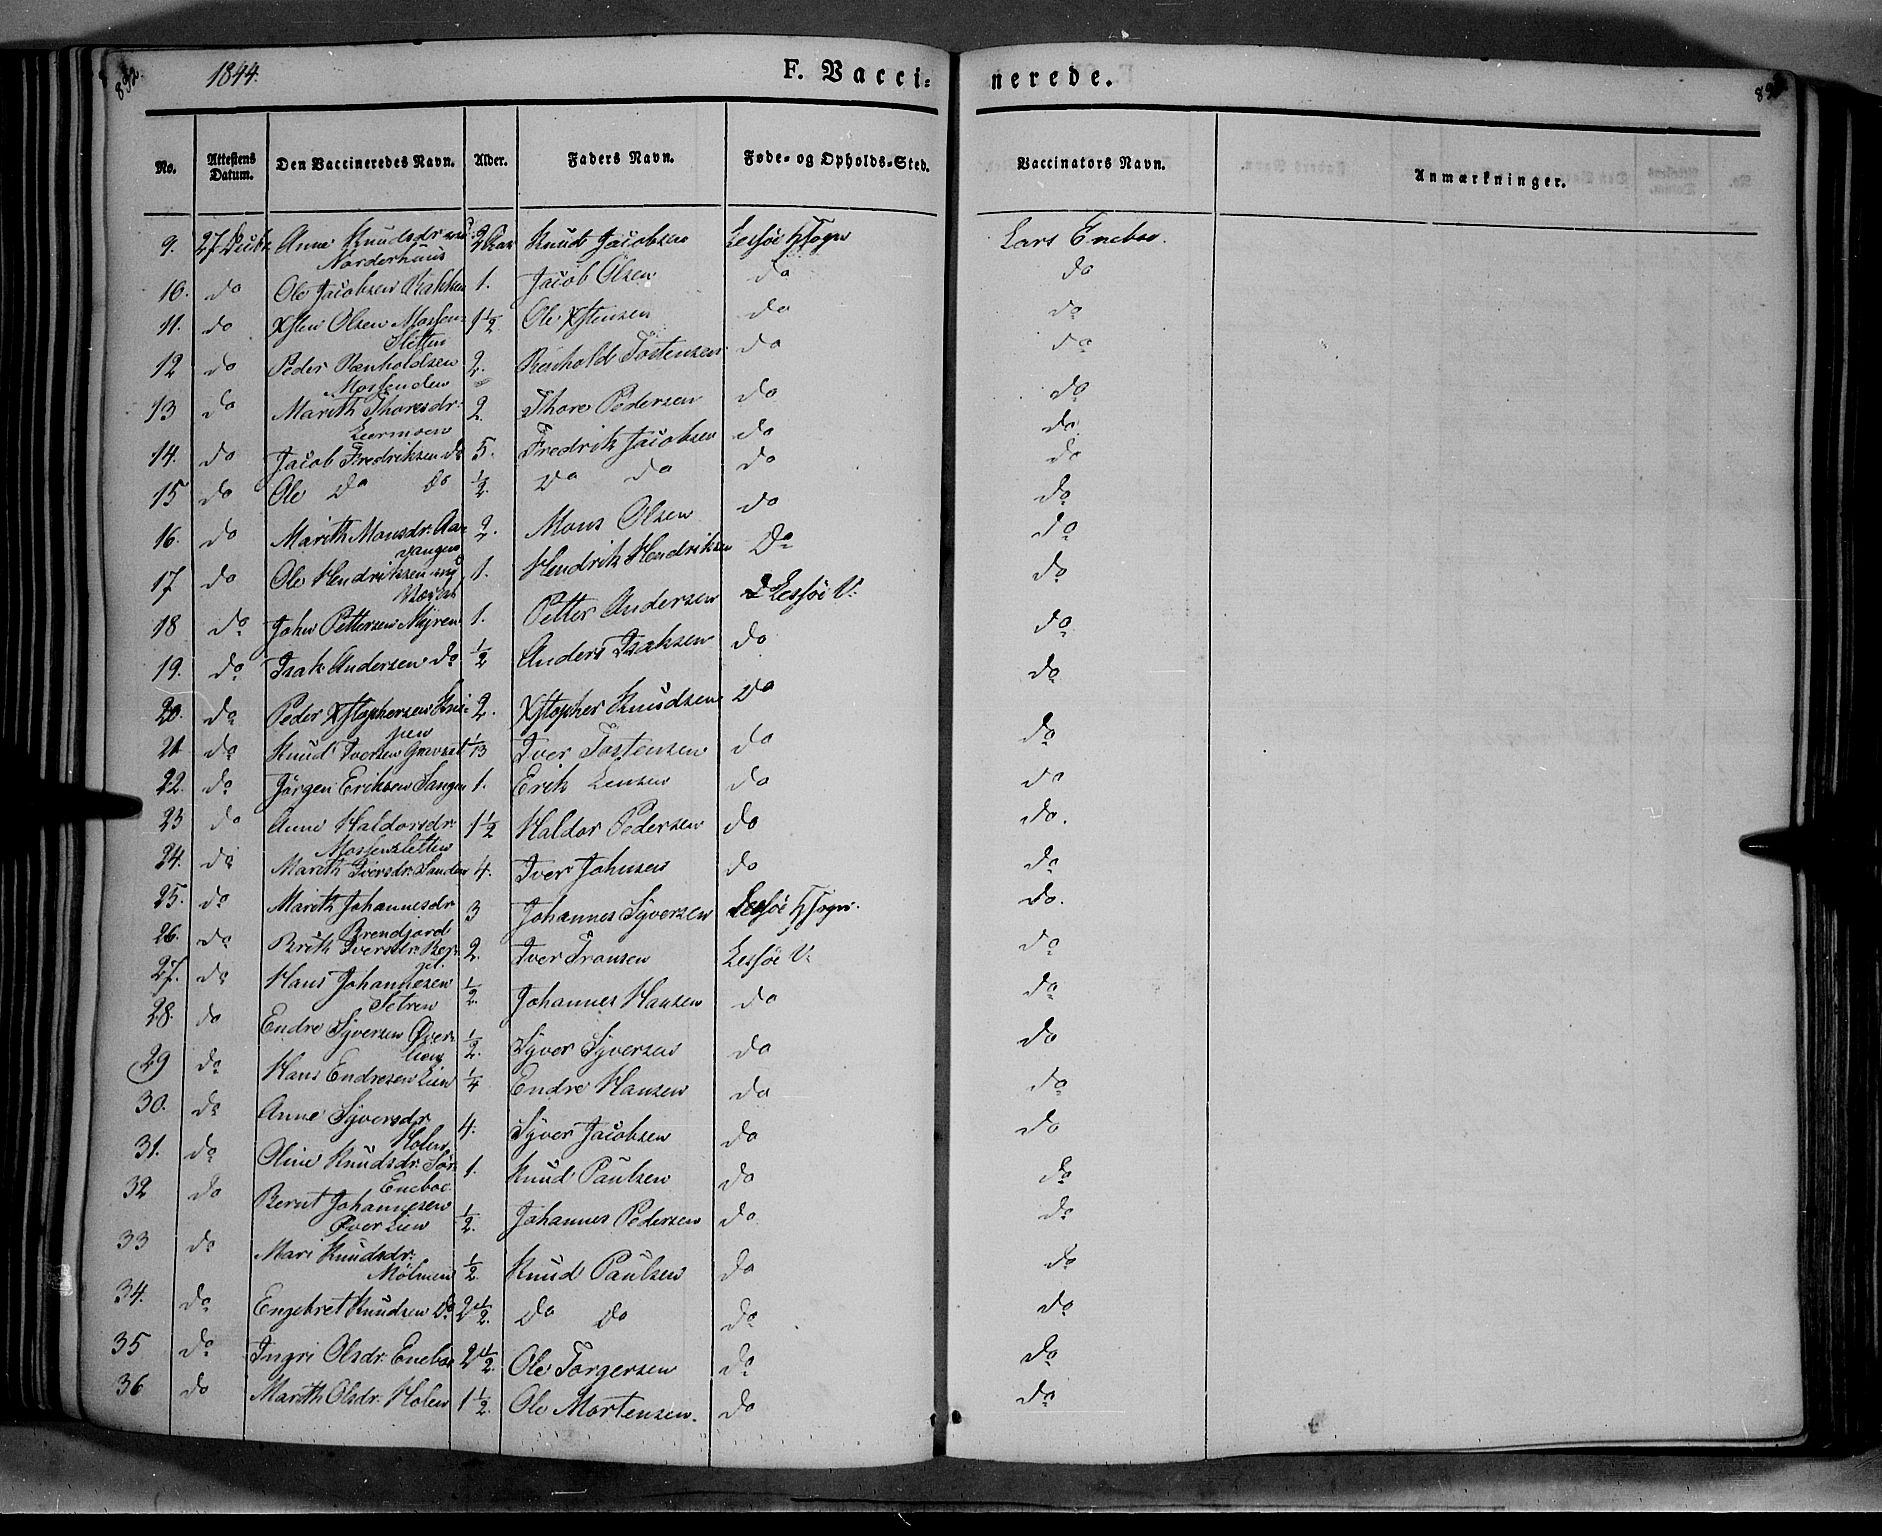 832.
1844.
F. Vacci=
nerede.
No.
Attestens Datum.
Den Vaccineredes Navn.
Alder.
Faders Navn.
Føde- og Opholds-Sted.
Vaccinators Navn.
Anmærkninger.
9. Anne Knudsdr 2 Aar Knud Jacobsen Lessøe HSogn Lars Eneboe.
Norderhuus
10. do Ole Jacobsen Bakken 1. Jacob Olsen do do
11. do Xsten Olsen Mossen= 1½ Ole Xstensen do do
Sletten
12 do Peder Renholdsen 2. Renhold Tostensen do do
Mossenden
13 do Marith Thoresdr: 2 Thore Pedersen do do
Leermoen
14. do Jacob Fredriksen do 5. Fredrik Jacobsen do do
15 do Ole Do do ½. Do do do do
16. do Marith Monsdr. Aa= 2. Mons Olsen do do
vangen
17 do Ole Hendriksen 1. Hendrik Hendriksen Do do
18 do John Pettersen Myren 1. Petter Andersen Lessøe V. do
19. do Isak Andersen do ½ Anders Isaksen do do
20. do Peder Xstophersen 2. Xstopher Knudsen Do do
21 do Knud Iversen Iver Tostensen do do
22. do Jørgen Eriksen 1. Erik Lensen do do
23 do Anne Haldorsdr: 1½ Haldor Pedersen do do.
Mossensletten
24. do Marith Iversdr. Sanden 4. Iver Johnsen do do
25. do Marith Johannesdr 3 Johannes Syversen Lessøe HSogn. do.
Brendjord
26. do Brith Iversdr. 2. Iver Fransen Lessøe V. do
27. do Hans Johannesen ½ Johannes Hansen do do
Setren
28. do Endre Syversen Øver= ½. Syver Syversen do do
lien
29 do Hans Endresen Lien ¼ Endre Hansen do do
30. do Anne Syversdr. 4. Syver Jacobsen do do
Holen
31. do Oline Knudsdr. Sør 1. Knud Paulsen do do
Eneboe
32 do Bernt Johannesen ½. Johannes Pedersen do do
Øver Lien
33 do Mari Knudsdr: ½ Knud Paulsen do do
Mølmen
34. do Engebret Knudsen Do 2½. Do do do do
35 do Ingri Olsdr. Eneboe 2½. Ole Torgersen do do
36 do Marith Olsdr. Holen 1½. Ole Mortensen. do do